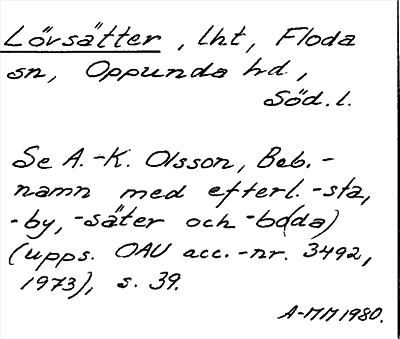 Lövsätter, lht, Floda
sn, Oppunda hd.,
Söd. l.
Se A.-K. Olsson, Beb.-
namn med efterl. -sta,
-by, -säter och -bo(da)
(upps. OAU acc.-nr. 3492,
1973), s. 39.
A-MM 1980.